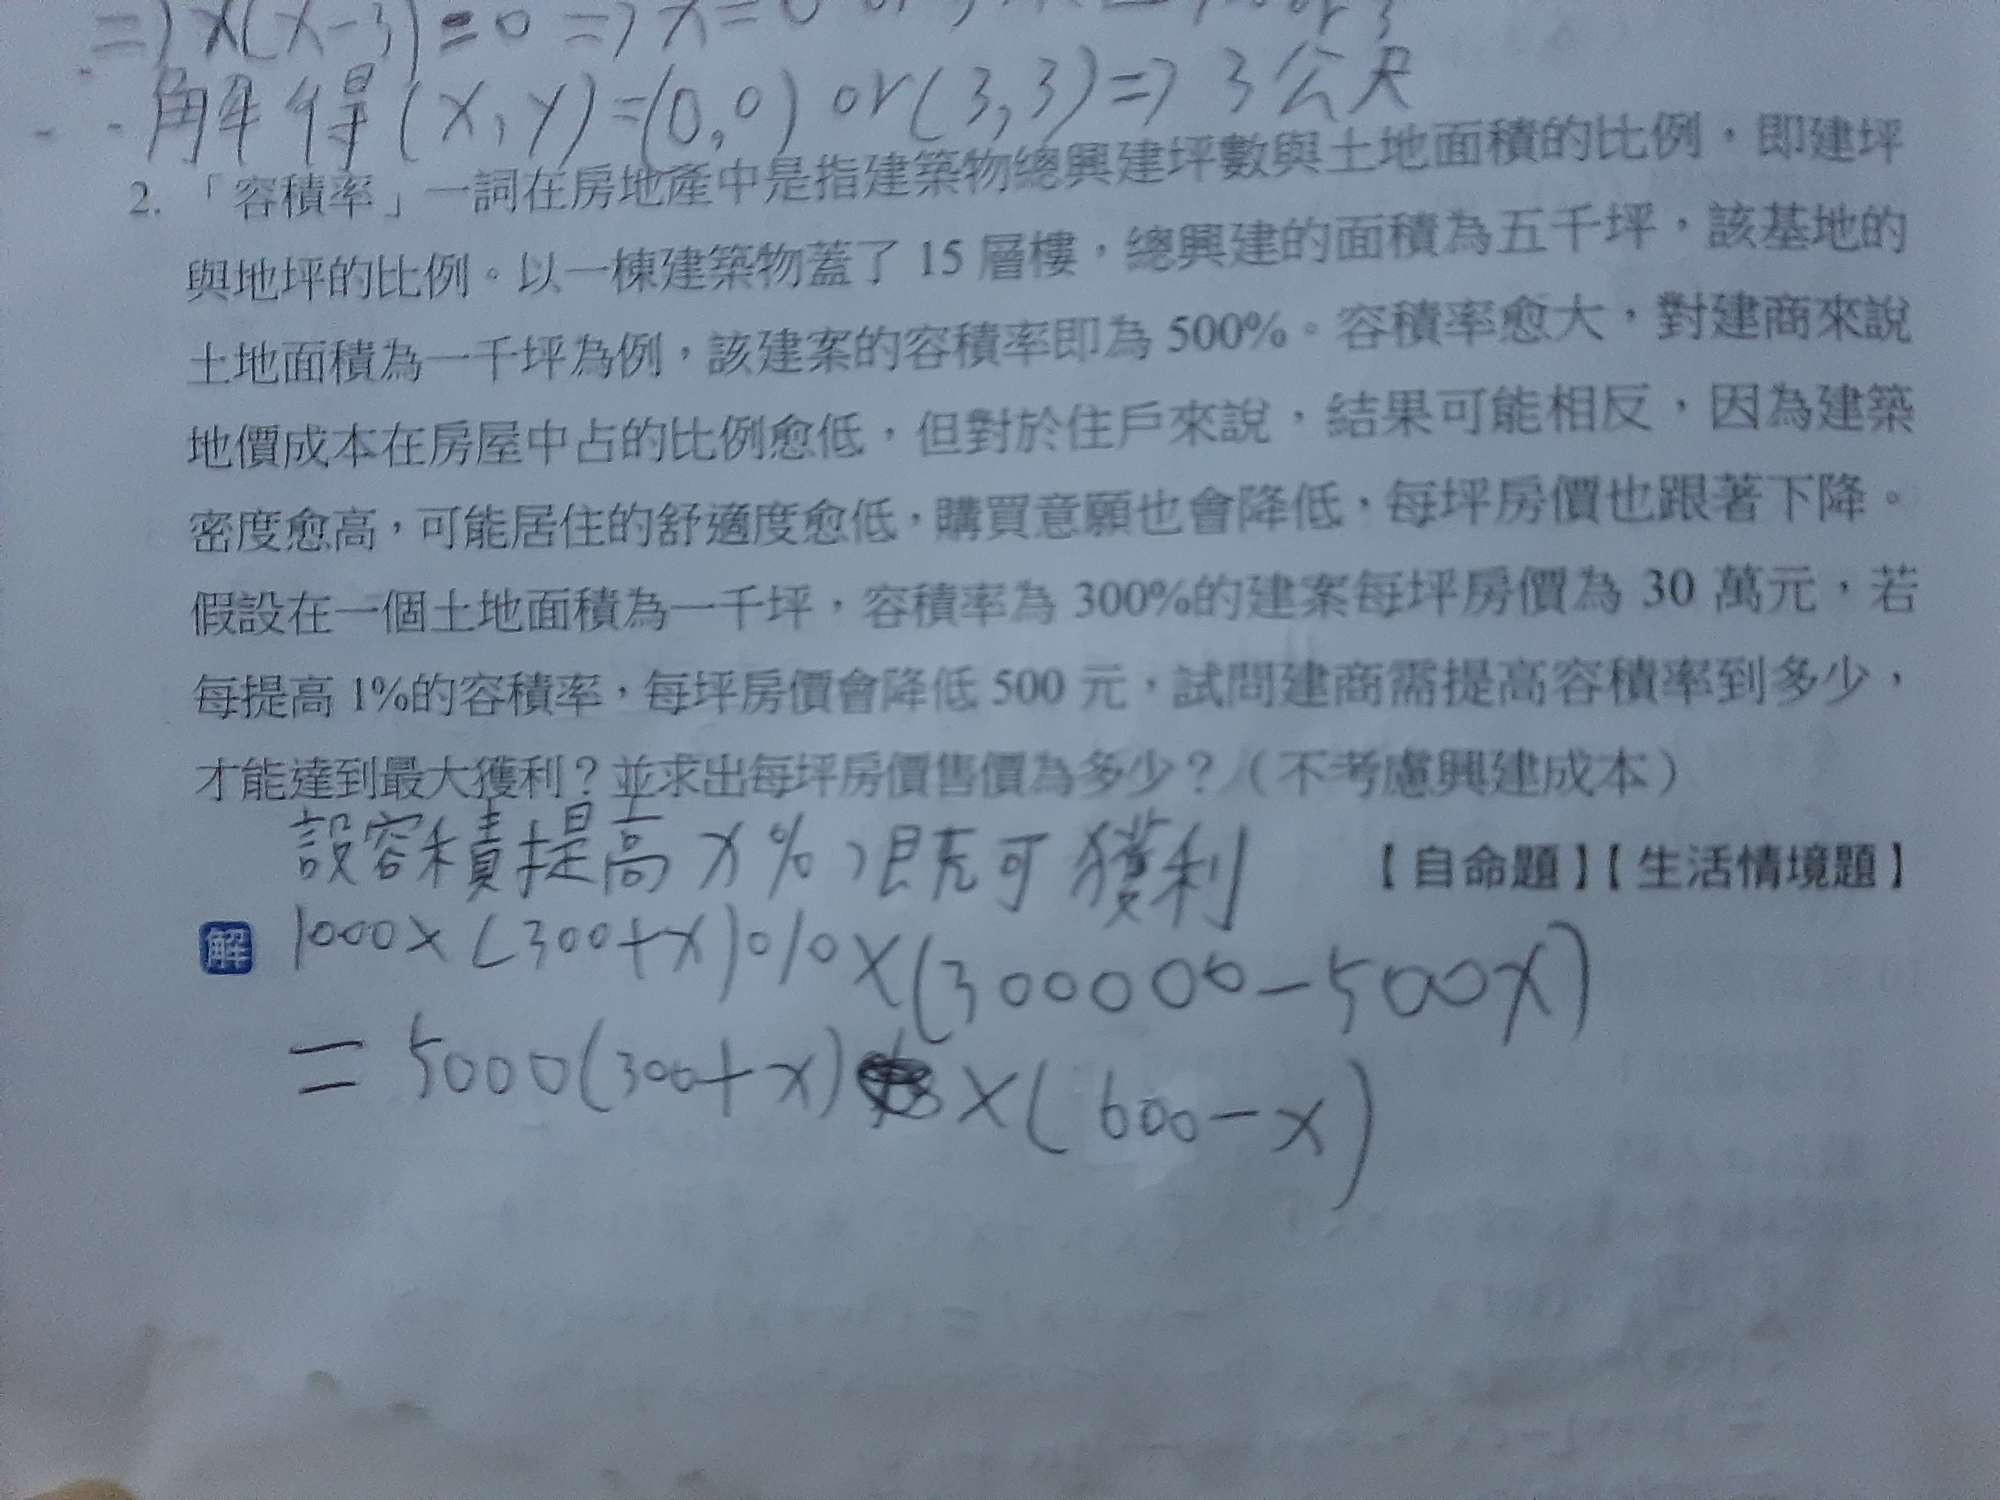 =>x(x-3)=0 => x=0 or 3
解得(x,y)=(0,0) or (3,3)=>3公尺
2. 「容積率」一詞在房地產中是指建築物總興建坪數與土地面積的比例，即建坪
與地坪的比例。以一棟建築物蓋了 15 層樓，總興建的面積為五千坪，該基地的
土地面積為一千坪為例，該建案的容積率即為 500%。容積率愈大，對建商來說
地價成本在房屋中占的比例愈低，但對於住戶來說，結果可能相反，因為建築
密度愈高，可能居住的舒適度愈低，購買意願也會降低，每坪房價也跟著下降。
假設在一個土地面積為一千坪，容積率為 300%的建案每坪房價為 30 萬元，若
每提高 1%的容積率，每坪房價會降低 500 元，試問建商需提高容積率到多少，
才能達到最大獲利？並求出每坪房價售價為多少？（不考慮興建成本）
設容積提高 x%，既可獲利
【自命題】【生活情境題】
解 1000×(300+x)%×(300000-500x)
= 5000(300+x)×(600-x)